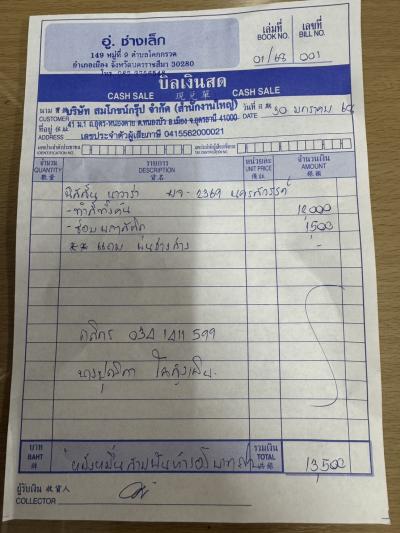 อู่. ช่างเล็ก
149 หมู่ที่ 9 ตำบลโคกกรวด
อำเภอเมือง จังหวัดนครราชสีมา 30280
เล่มที่ เลขที่
BOOK NO. BILL NO.
01/63 001
บิลเงินสด
CASH SALE 現兌單 CASH SALE
นาม บริษัท สมโภชน์กรุ๊ป จำกัด (สำนักงานใหญ่) วันที่ 30 มกราคม
CUSTOMER DATE
41 ม.1 ถ.อุดร-หนองคาย ต.หนองบัว อ.เมือง จ.อุดรธานี 41000
ที่อยู่
ADDRESS เลขประจำตัวผู้เสียภาษี 0415562000021
จำนวน รายการ หน่วยละ จำนวนเงิน
QUANTITY DESCRIPTION UNIT PRICE AMOUNT
นิสสัน นาวาร่า 2369 นครสวรรค์
- ทำสีทั้งคัน 12,000
- ซ่อม 1,500
** แถม -
กสิกร 034 1411 599
บาท รวมเงิน
BAHT TOTAL
หนึ่งหมื่นสามพันห้าร้อยบาทถ้วน 13,500
ผู้รับเงิน 收貨人
COLLECTOR